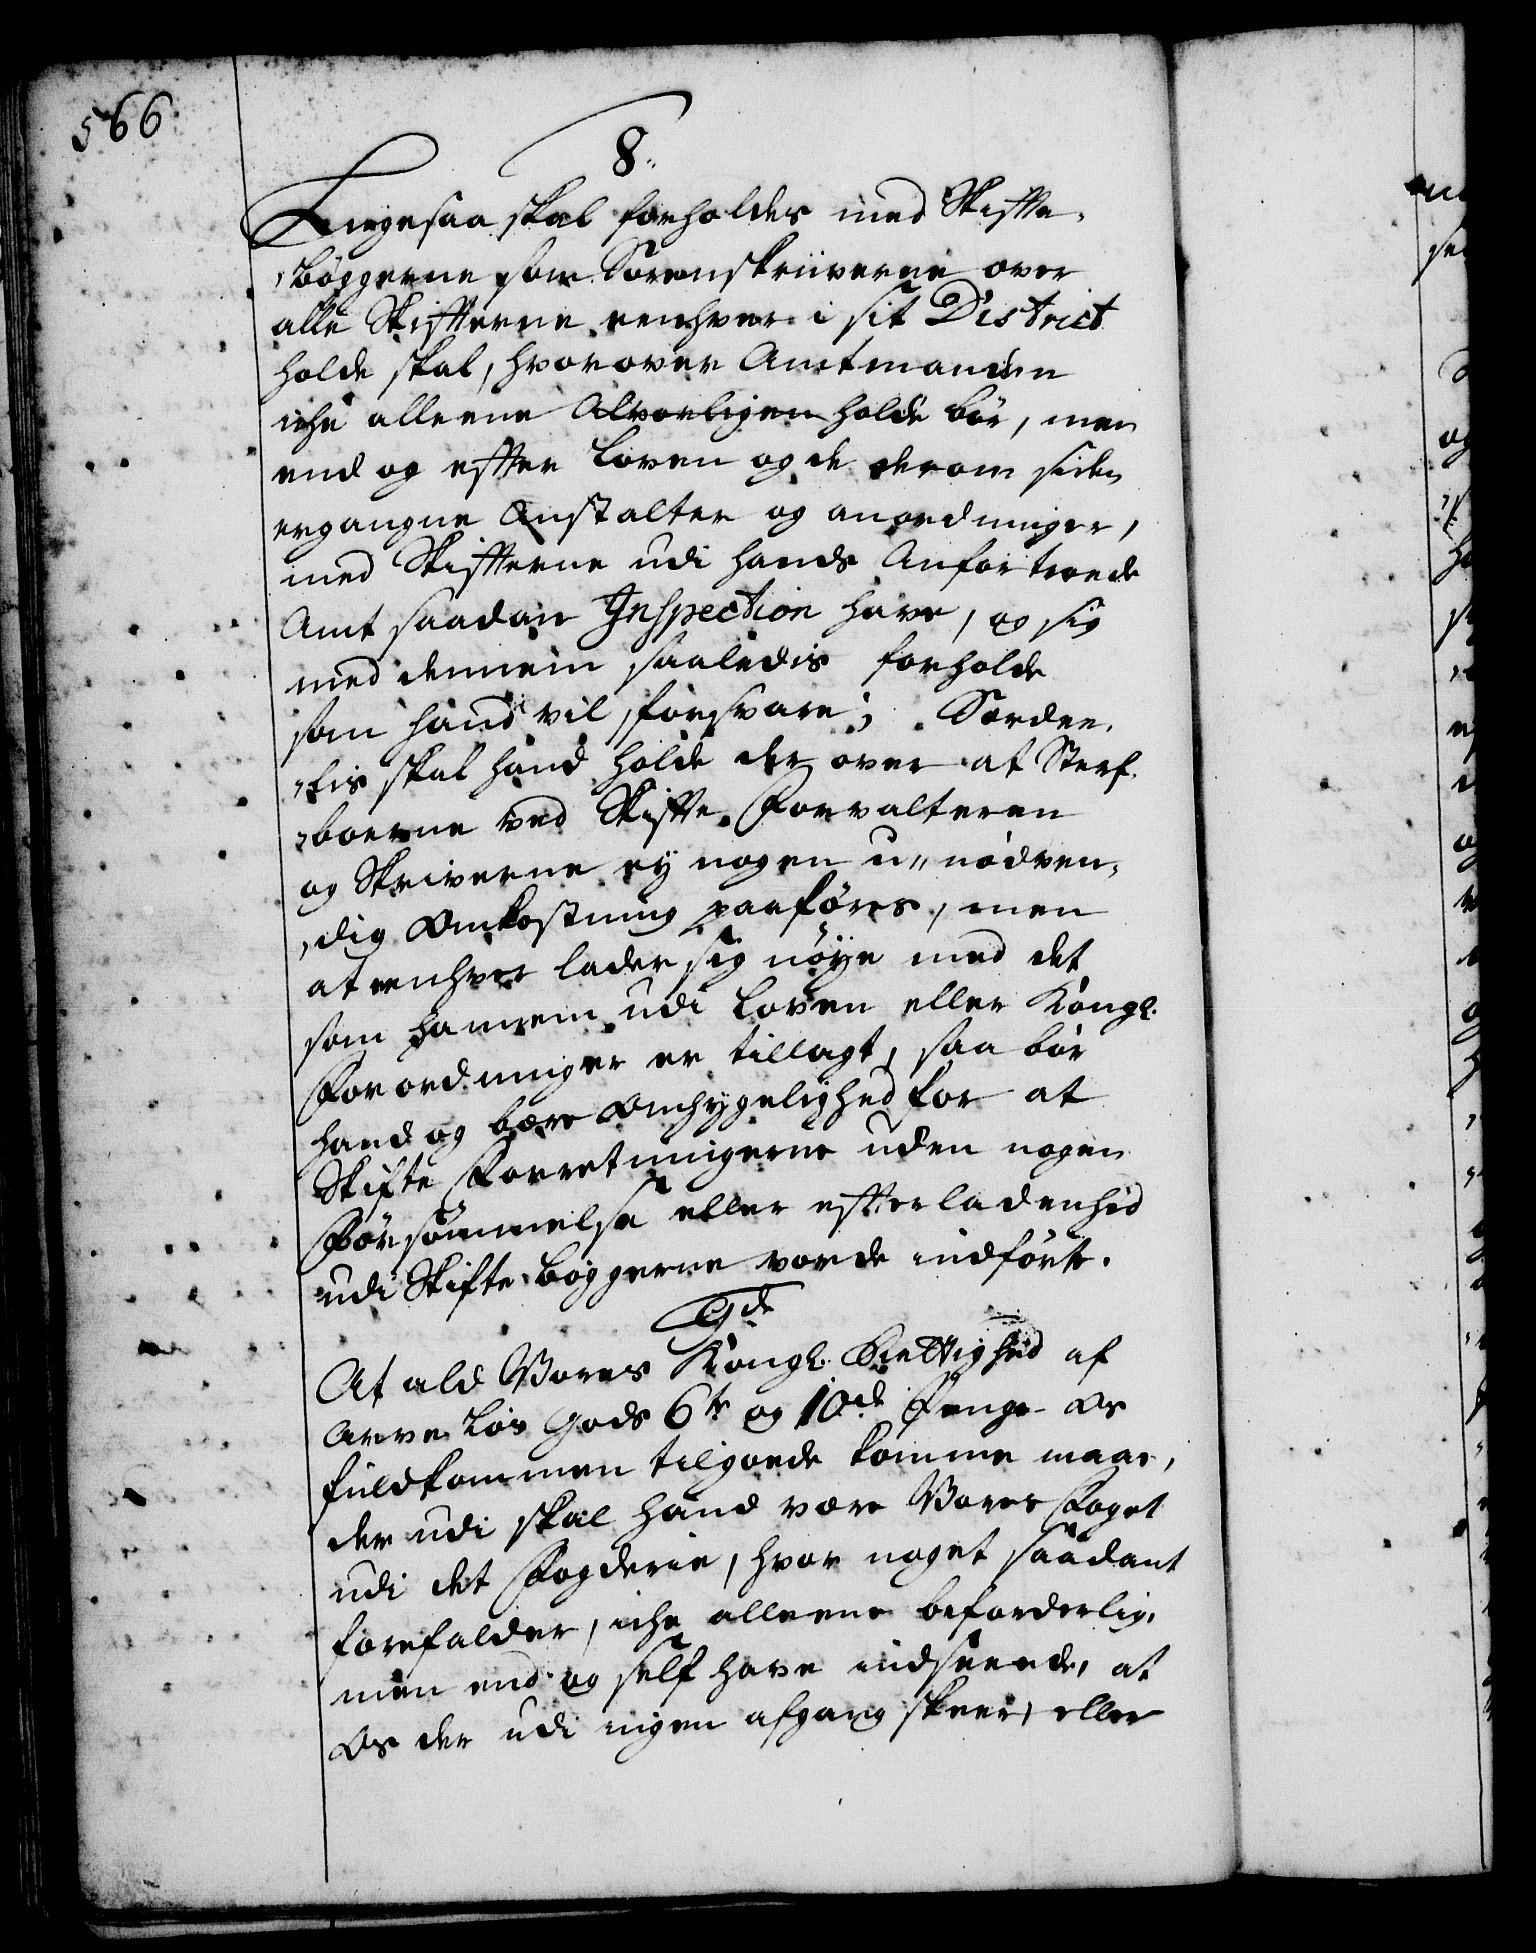 566
8.
Liigesaa skal forholdes med Skifte„
„bøggerne som Sorenskriiverne over
alle Skifterne eenhver i sit District
holde skal, hvorover Amtmanden
iche alleene Alvorligen holde bør, men
end og effter Loven og de derom siden
ergangne Anstalter og anordninger,
med Skifterne udi hands Anfortroede
Amt saadan Inspection have, og sig
med dennem saaledis forholde
som hand vil forsvare; Særdee„
„lis skal hand holde der over at Sterf„
„boerne ved Skifte Forvalteren
og Skriverne ey nogen u„nødven„
„dig Omkostning paaføres, men
at eenhver lader sig nøye med det
som hannem udi Loven eller Kongl.
Forordninger er tillagt, saa bør
hand og bære Omhyggelighed for at
Skifte Forretningerne uden nogen
Forsømmelse eller effterladenhed
udi Skifte bøggerne vorde indførte.
9de
At ald Vores Kongl. Rettighed af
Arve løs Gods 6te og 10de Penge Os
fuldkommen tilgoede komme maae,
der udi skal hand være Vores Foget
udi det Fogderie, hvor noget saadant
forefalder, iche alleene beforderlig,
men end og self have indseende, at
Os der udi ingen afgang skeer, eller